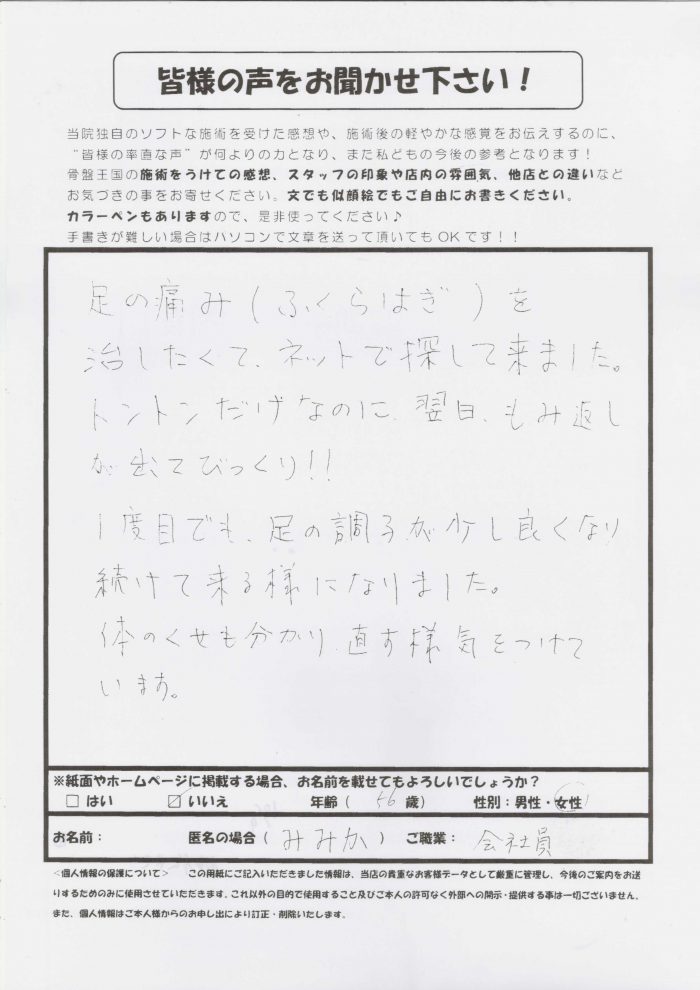 皆様の声をお聞かせ下さい！
当院独自のソフトな施術を受けた感想や、施術後の軽やかな感覚をお伝えするのに、
“皆様の率直な声”が何よりの力となり、また私どもの今後の参考となります！
骨盤王国の施術をうけての感想、スタッフの印象や店内の雰囲気、他店との違いなど
お気づきの事をお寄せください。文でも似顔絵でもご自由にお書きください。
カラーペンもありますので、是非使ってください♪
手書きが難しい場合はパソコンで文章を送って頂いてもOKです！！
足の痛み(ふくらはぎ)を
治したくて、ネットで探して来ました。
トントンだけなのに、翌日、もみ返し
が出てびっくり!!
1度目でも、足の調子が少し良くなり
続けて来る様になりました。
体のくせも分かり、直す様気をつけて
います。
※紙面やホームページに掲載する場合、お名前を載せてもよろしいでしょうか？
□ はい ☑ いいえ 年齢( 56 歳) 性別：男性・女性
お名前： 匿名の場合( みみか ) ご職業： 会社員
<個人情報の保護について> この用紙にご記入いただきました情報は、当店の貴重なお客様データとして厳重に管理し、今後のご案内をお送
りするためのみに使用させていただきます。これ以外の目的で使用すること及びご本人の許可なく外部への開示・提供する事は一切ございません。
また、個人情報はご本人様からのお申し出により訂正・削除いたします。